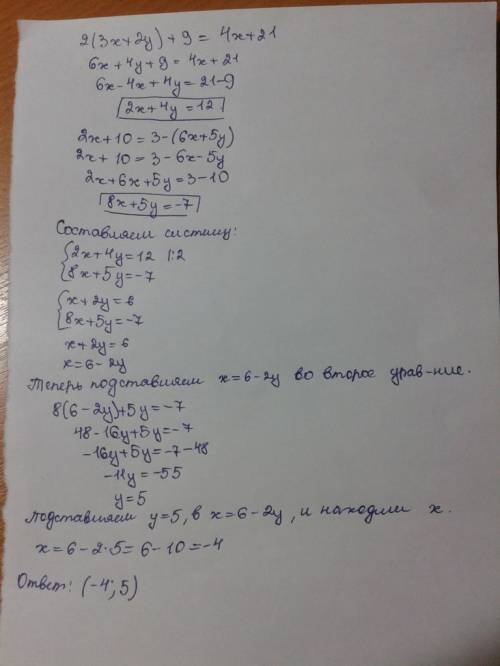 2(3x+2y)+9 = 4x+21
6x+4y+9=4x+21
6x-4x+4y=21-9
2x+4y=12
2x+10=3-(6x+5y)
2x+10=3-6x-5y
2x+6x+5y=3-10
8x+5y=-7
Составляем систему:
{2x+4y=12 |:2
{8x+5y=-7
{x+2y=6
{8x+5y=-7
x+2y=6
x=6-2y
Теперь подставляем x=6-2y во второе урав-ние.
8(6-2y)+5y=-7
48-16y+5y=-7
-16y+5y=-7-48
-11y=-55
y=5
Подставляем y=5, в x=6-2y, и находим x.
x=6-2·5=6-10=-4
Ответ: (-4; 5)